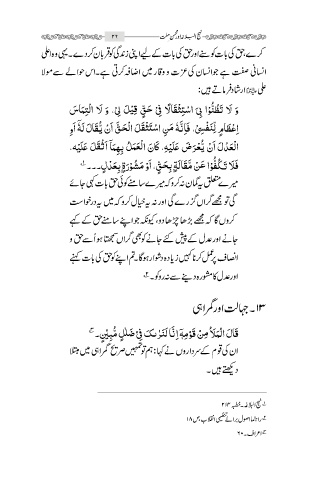 نہج البلاغہ اور حسنِ معاشرت ۲۶
کرے، حق کی بات کو سنے اور حق کی بات کے لیے اپنی زندگی کو قربان کر دے۔ یہی وہ اعلیٰ
انسانی صفت ہے جو انسان کی عزت و وقار میں اضافہ کرتی ہے۔ اس حوالے سے مولا
علی ارشاد فرماتے ہیں:
وَ لَا تَظُنُّوْا بِیَ اسْتِثْقَالًا فِیْ حَقٍّ قِیْلَ لِیْ، وَ لَا الْتِمَاسَ
اِعْظَامٍ لِّنَفْسِیْ، فَاِنَّهٗ مَنِ اسْتَثْقَلَ الْحَقَّ اَنْ یُّقَالَ لَهٗ اَوِ
الْعَدْلَ اَنْ یُّعْرَضَ عَلَیْهِ، كَانَ الْعَمَلُ بِهِمَاۤ اَثْقَلَ عَلَیْهِ.
فَلَا تَكُفُّوْا عَنْ مَّقَالَةٍۭ بِحَقٍّ، اَوْ مَشُوْرَةٍۭ بِعَدْلٍ۔۔۔ ۱؎
میرے متعلق یہ گمان نہ کرو کہ میرے سامنے کوئی حق بات کہی جائے
گی تو مجھے گراں گزرے گی اور نہ یہ خیال کرو کہ میں یہ درخواست
کروں گا کہ مجھے بڑھا چڑھا دو، کیونکہ جو اپنے سامنے حق کے کہے
جانے اور عدل کے پیش کئے جانے کو بھی گراں سمجھتا ہو اُسے حق و
انصاف پر عمل کرنا کہیں زیادہ دشوار ہو گا۔ تم اپنے کو حق کی بات کہنے
اور عدل کا مشورہ دینے سے نہ روکو۔ ۲؎
۱۳۔ جہالت اور گمراہی
قَالَ الْمَلَاُ مِنْ قَوْمِهٖۤ اِنَّا لَنَرٰىكَ فِیْ ضَلٰلٍ مُّبِیْنٍ۔ ۳؎
ان کی قوم کے سرداروں نے کہا: ہم تو تمہیں صریح گمراہی میں مبتلا
دیکھتے ہیں۔
۱؎ نہج البلاغہ۔ خطبہ ۲۱۴
۲؎ رہنما اصول برائے تنظیمی انقلاب، ص ۱۸
۳؎ اعراف۔ ۶۰